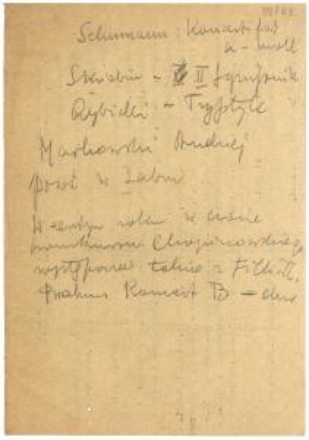 Schumann: Koncert fort
a-moll
Skriabin - II Symfonia
Rybicki - Tryptyk
Markowski Andrzej
w
W rok w czasie
konkursu Chopinowskiego
występował także z Filh.
Brahms Koncert B-dur